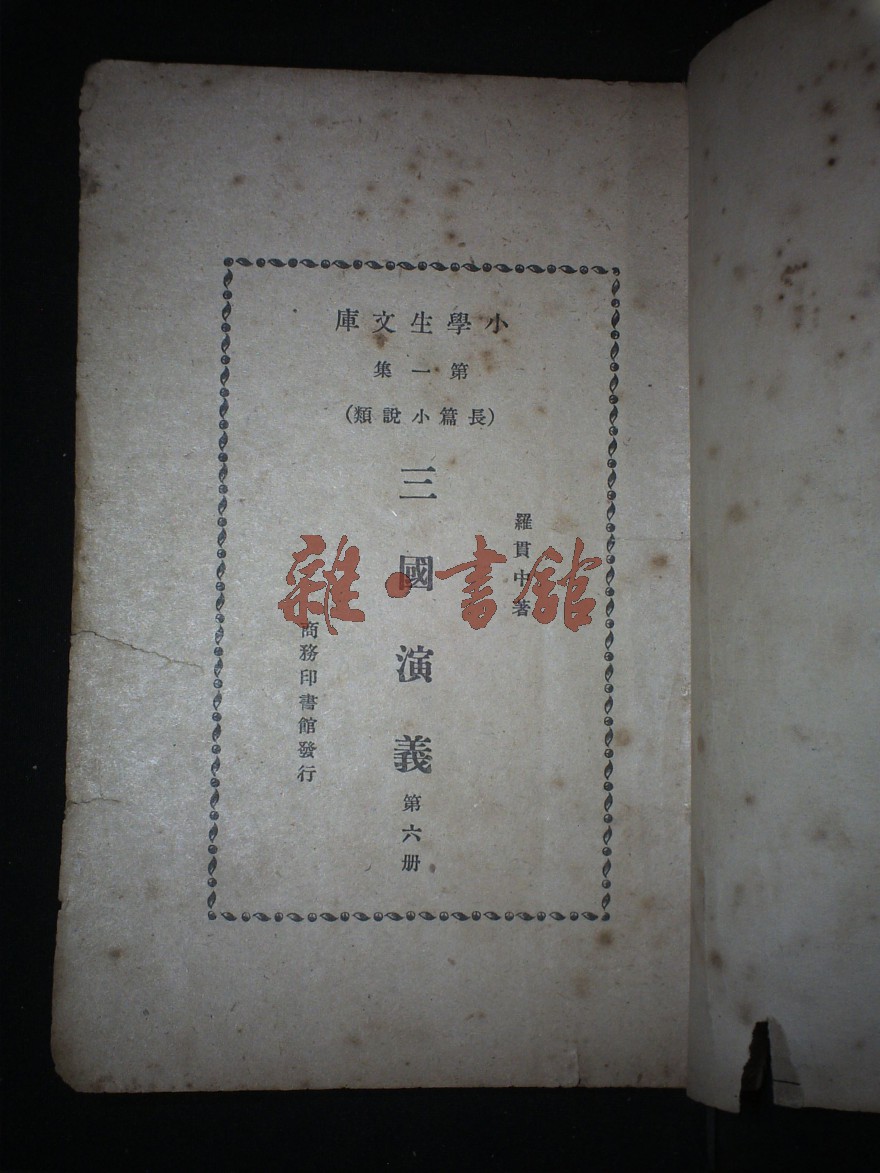 小學生文庫
第一集
(長篇小說類)
羅貫中著
三國演義 第六册
商務印書館發行
雜·書館